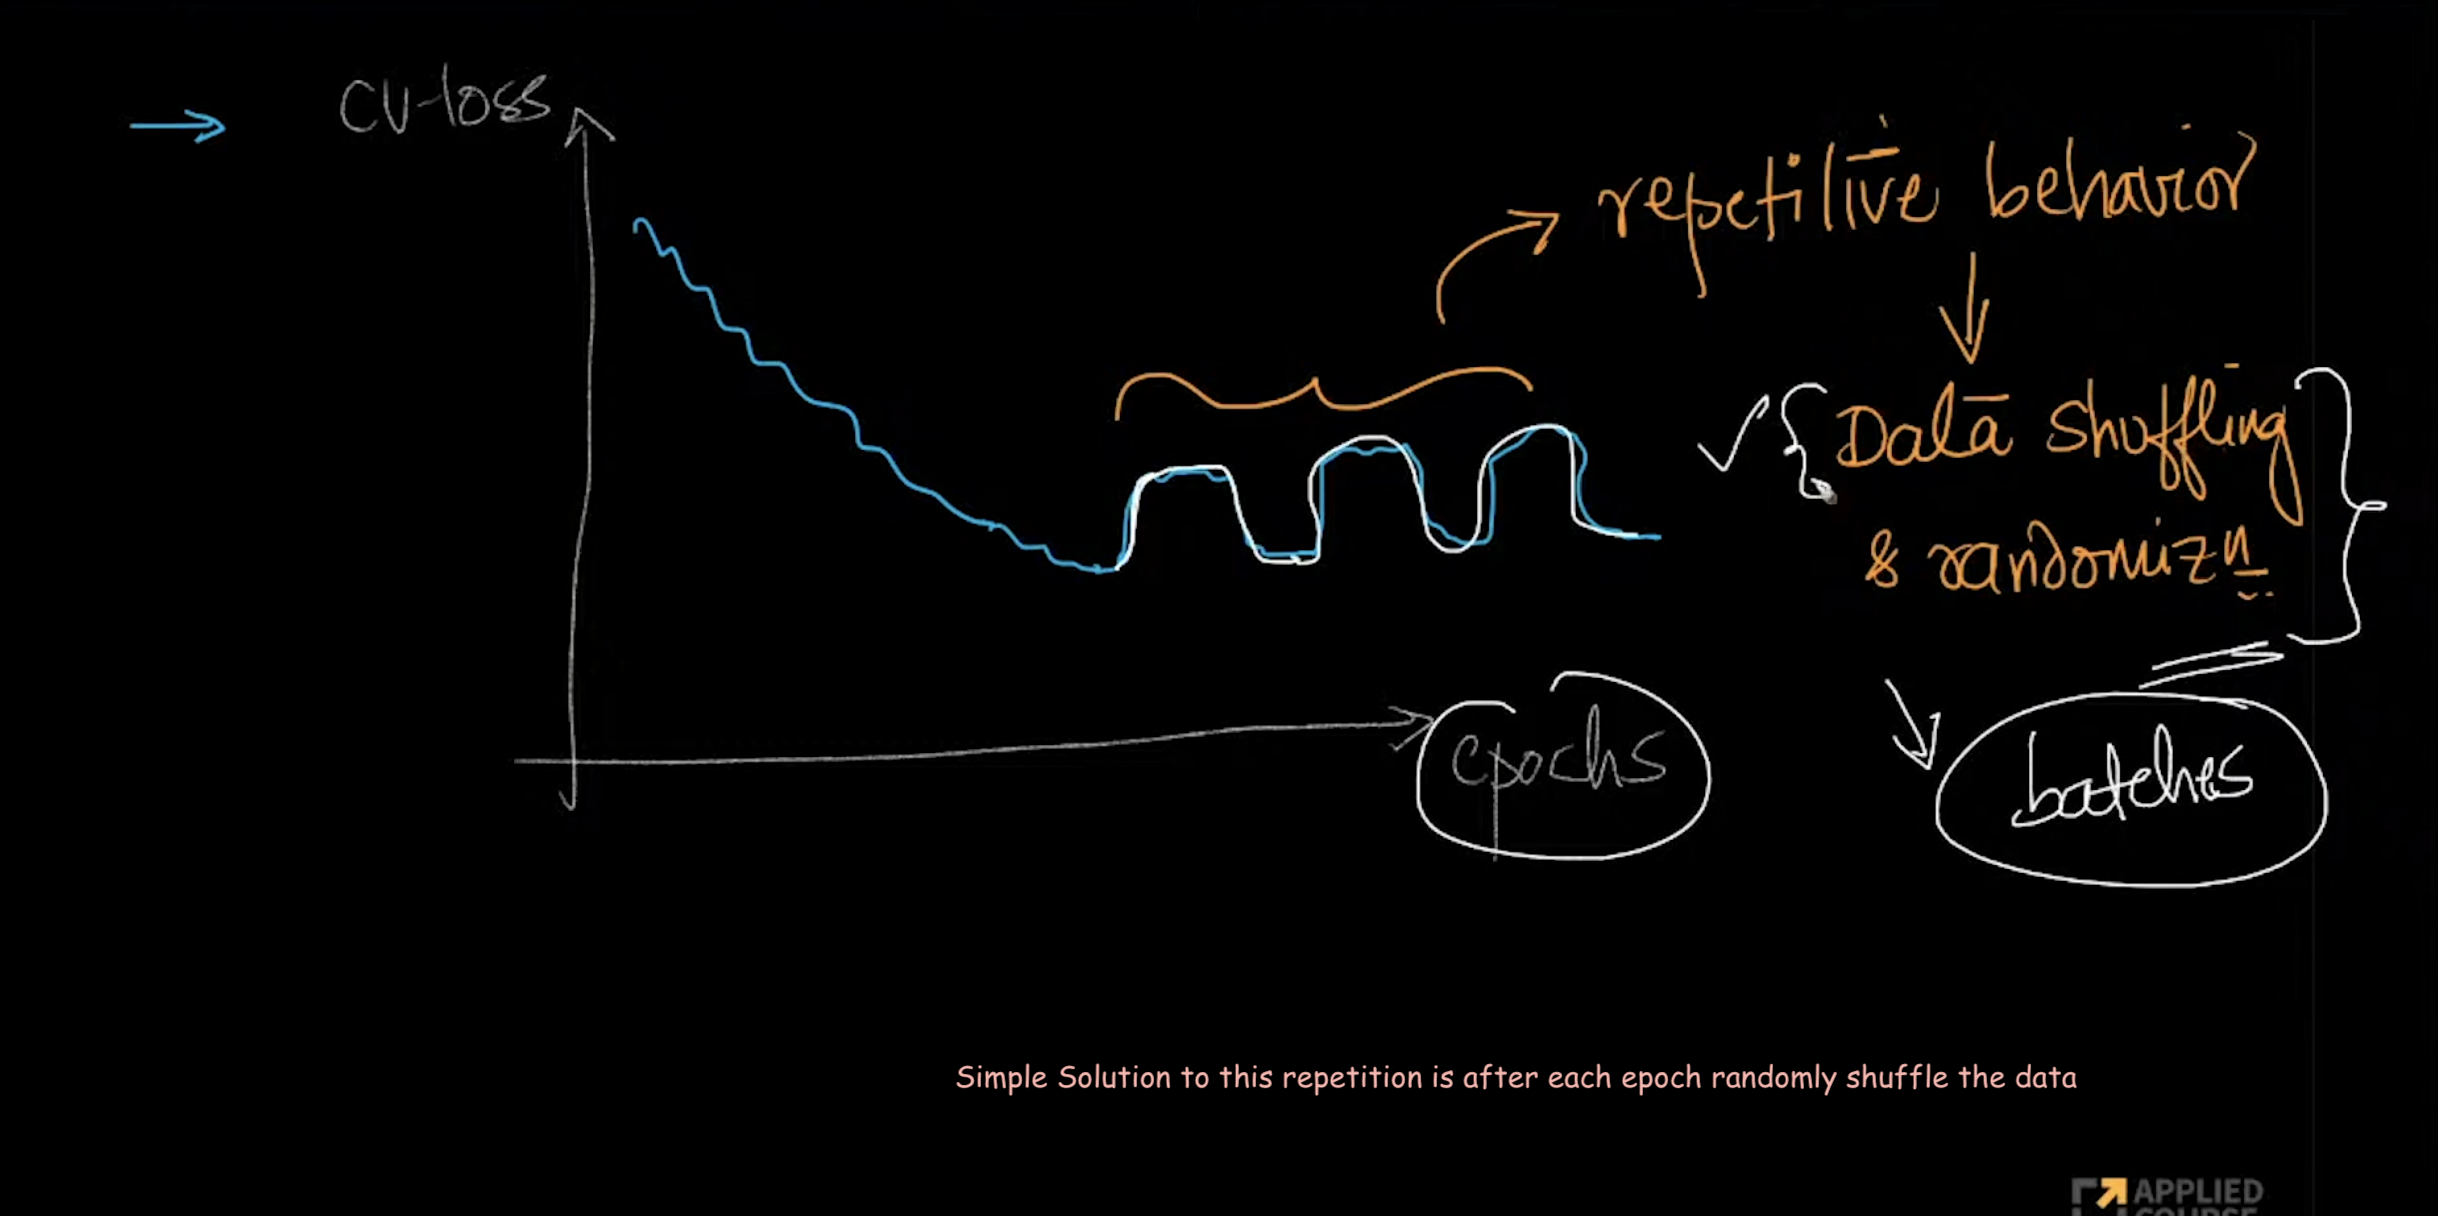 CV-loss
repetitive behavior
Data shuffling
& randomizn
epochs
batches
Simple Solution to this repetition is after each epoch randomly shuffle the data
APPLIED
COURSE